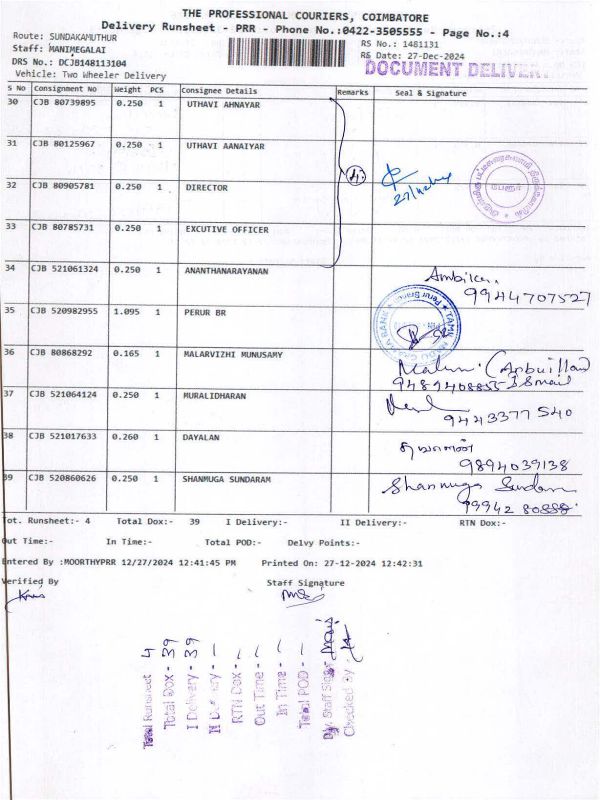 THE PROFESSIONAL COURIERS, COIMBATORE
Delivery Runsheet - PRR - Phone No.:0422-3505555 - Page No.:4
Route: SUNDAKAMUTHUR
RS No.: 1481131
Staff: MANIMEGALAI
RS Date: 27-Dec-2024
DRS No.: DCJB148113104
DOCUMENT DELIVERY
Vehicle: Two Wheeler Delivery
S No Consignment No Weight PCS Consignee Details Remarks Seal & Signature
30 CJB 80739895 0.250 1 UTHAVI AHNAYAR
31 CJB 80125967 0.250 1 UTHAVI AANAIYAR
4
பேரூர்
32 CJB 80905781 0.250 1 DIRECTOR
33 CJB 80785731 0.250 1 EXCUTIVE OFFICER
34 CJB 521061324 0.250 1 ANANTHANARAYANAN
Ambika
9944707527
35 CJB 520982955 1.095 1 PERUR BR
TAMIL NADU GRAMA BANK
Perur Branch
36 CJB 80868292 0.165 1 MALARVIZHI MUNUSAMY
9489408855
37 CJB 521064124 0.250 1 MURALIDHARAN
9443377540
38 CJB 521017633 0.260 1 DAYALAN
9894039138
39 CJB 520860626 0.250 1 SHANMUGA SUNDARAM
Shanmuga Sundaram
99942 80888
Tot. Runsheet:- 4 Total Dox:- 39 I Delivery:- II Delivery:- RTN Dox:-
Out Time:- In Time:- Total POD:- Delvy Points:-
Entered By :MOORTHYPRR 12/27/2024 12:41:45 PM Printed On: 27-12-2024 12:42:31
Verified By Staff Signature
Total Runsheet 4
Total Dox - 39
I Delivery - 39
II Delivery -
RTN Dox -
Out Time -
In Time -
Total POD -
Dly. Staff Sign
Checked By